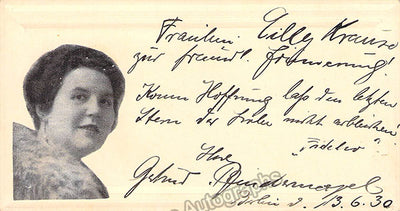 Fräulein Cilly Krause
zur freundl. Erinnerung!
Komm Hoffnung laß den letzten
Stern der Müden nicht erbleichen!
"Fidelio"
Ihre
Gertrud Bindernagel
Berlin d. 13.6.30
Autographs